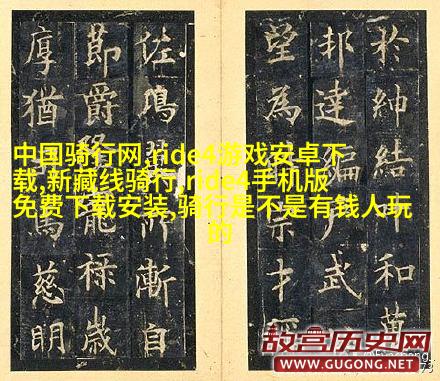 於紳結和黃
邦達武
望為宗才
佐鳴漸自
節爵祿歲
厚猶慈明
中国骑行网,ride4游戏安卓下
载,新藏线骑行,ride4手机版
免费下载安装,骑行是不是有钱人玩
的
故宫历史网
WWW.GUGONG.NET